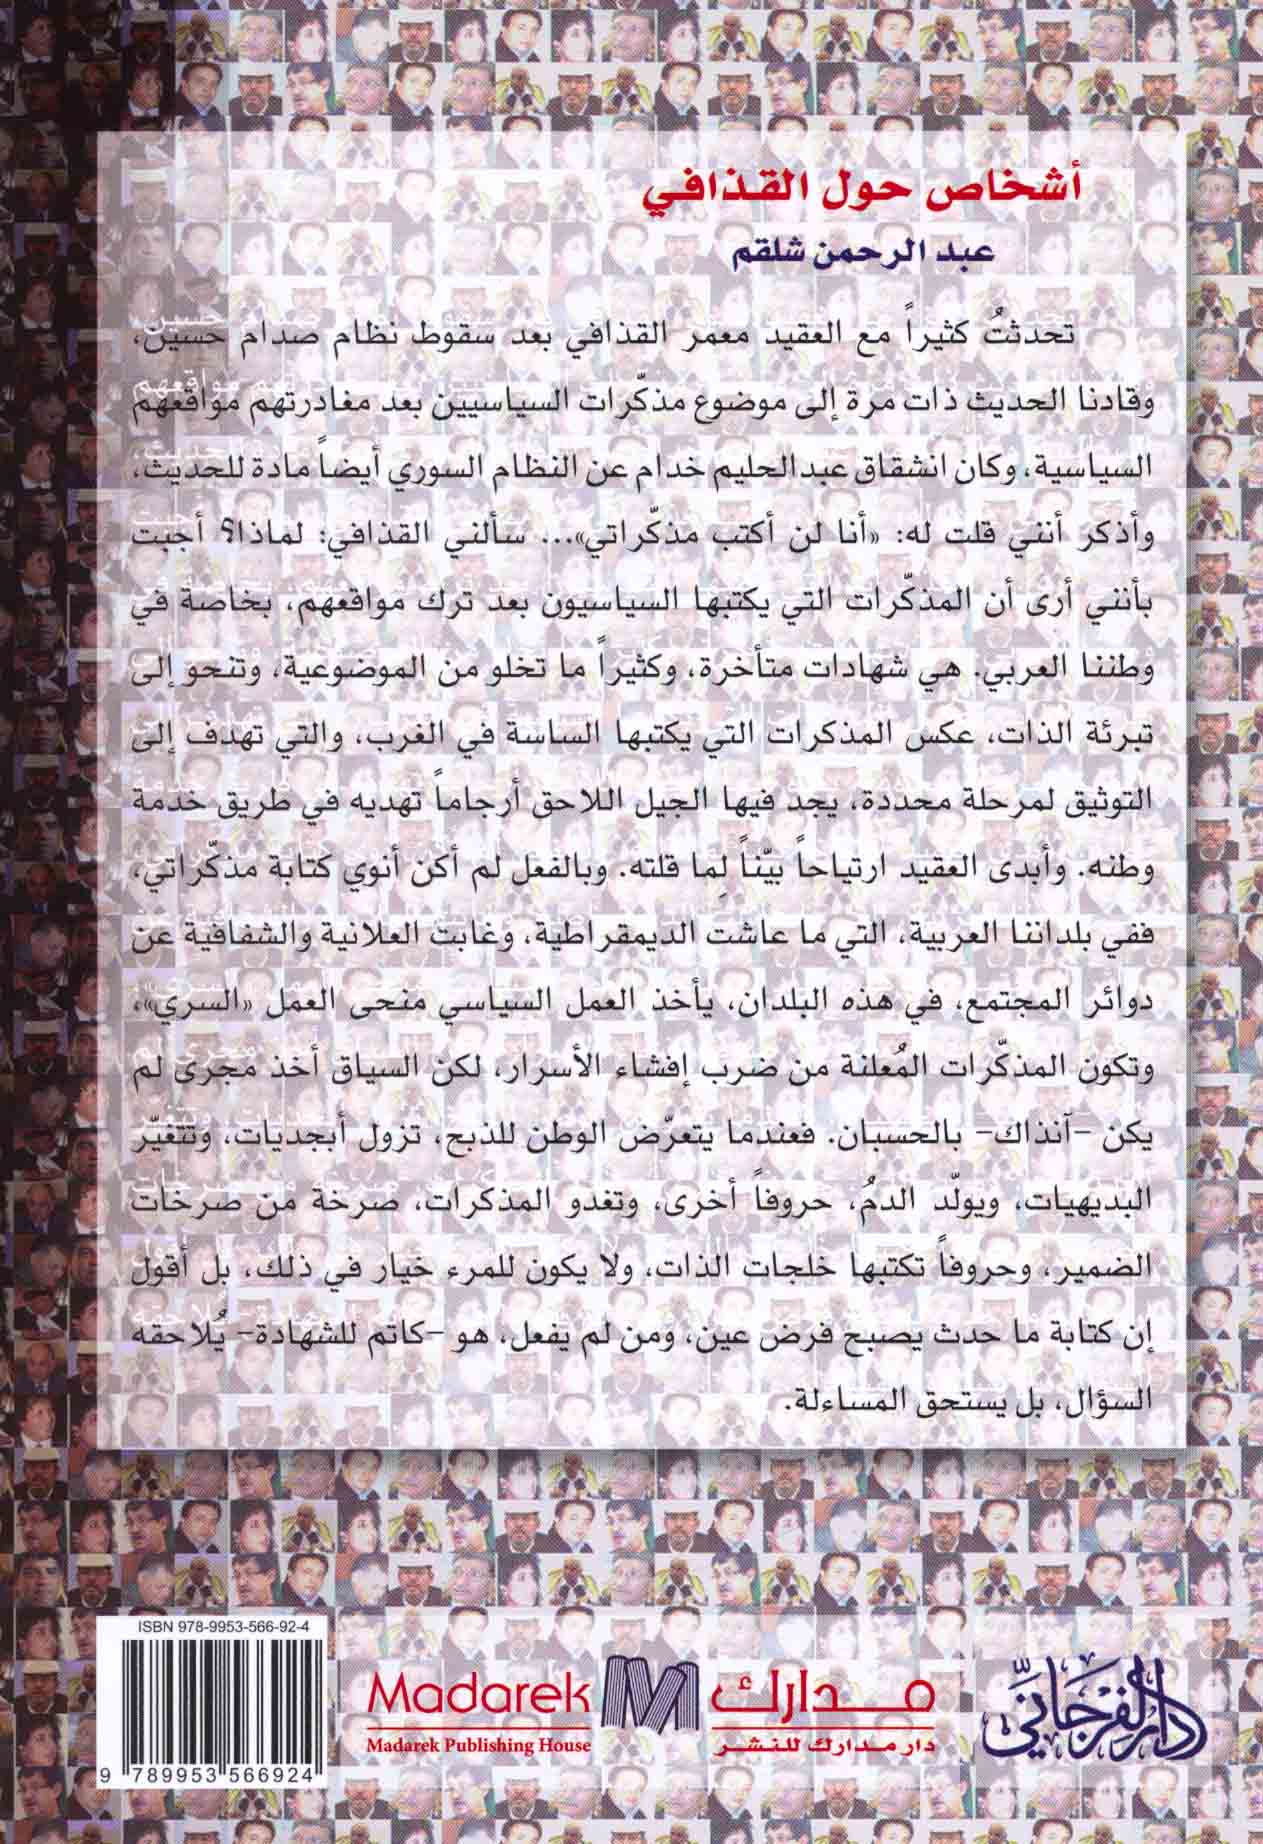 أشخاص حول القذافي
عبد الرحمن شلقم
تحدثتُ كثيراً مع العقيد معمر القذافي بعد سقوط نظام صدام حسين،
وقادنا الحديث ذات مرة إلى موضوع مذكّرات السياسيين بعد مغادرتهم مواقعهم
السياسية، وكان انشقاق عبدالحليم خدام عن النظام السوري أيضاً مادة للحديث،
وأذكر أنني قلت له: «أنا لن أكتب مذكّراتي»... سألني القذافي: لماذا؟ أجبت
بأنني أرى أن المذكّرات التي يكتبها السياسيون بعد ترك مواقعهم، بخاصة في
وطننا العربي. هي شهادات متأخرة، وكثيراً ما تخلو من الموضوعية، وتنحو إلى
تبرئة الذات، عكس المذكرات التي يكتبها الساسة في الغرب، والتي تهدف إلى
التوثيق لمرحلة محددة، يجد فيها الجيل اللاحق أرجاماً تهديه في طريق خدمة
وطنه. وأبدى العقيد ارتياحاً بيّناً لِما قلته. وبالفعل لم أكن أنوي كتابة مذكّراتي،
ففي بلداننا العربية، التي ما عاشت الديمقراطية، وغابت العلانية والشفافية عن
دوائر المجتمع، في هذه البلدان، يأخذ العمل السياسي منحى العمل «السري»،
وتكون المذكّرات المُعلنة من ضرب إفشاء الأسرار، لكن السياق أخذ مجرى لم
يكن –آنذاك– بالحسبان. فعندما يتعرّض الوطن للذبح، تزول أبجديات، وتتغيّر
البديهيات، ويولّد الدمُ، حروفاً أخرى، وتغدو المذكرات، صرخة من صرخات
الضمير، وحروفاً تكتبها خلجات الذات، ولا يكون للمرء خيار في ذلك، بل أقول
إن كتابة ما حدث يصبح فرض عين، ومن لم يفعل، هو –كاتم للشهادة– يُلاحقه
السؤال، بل يستحق المساءلة.
ISBN 978-9953-566-92-4
9 789953 566924
Madarek
Madarek Publishing House
مدارك
دار مدارك للنشر
دار الفرجاني